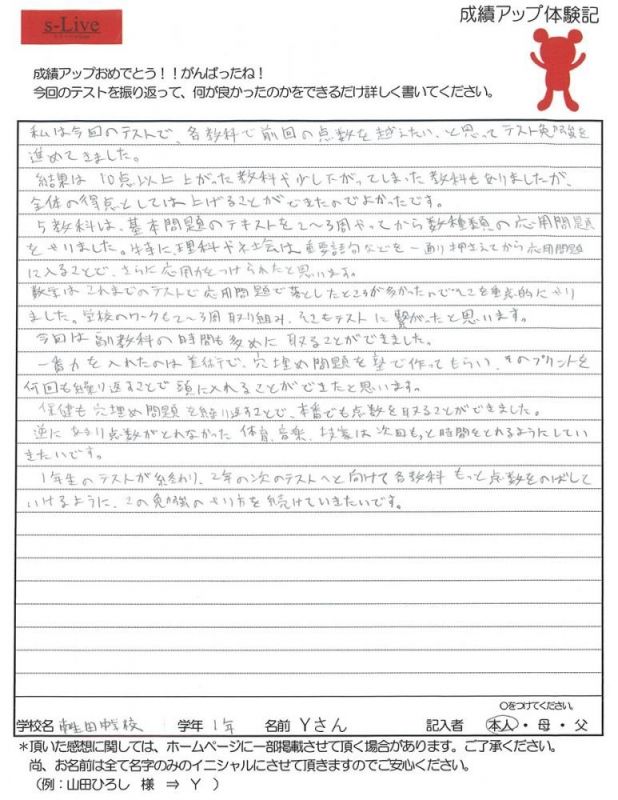 s-Live
成績アップ体験記
成績アップおめでとう！！がんばったね！
今回のテストを振り返って、何が良かったのかをできるだけ詳しく書いてください。
私は今回のテストで、各教科で前回の点数を越えたい、と思ってテスト勉強を
進めてきました。
結果は10点以上上がった教科や少し下がってしまった教科もありましたが、
全体の得点としては上げることができたのでよかったです。
5教科は、基本問題のテキストを2〜3周やってから数種類の応用問題
をやりました。特に、理科や社会は重要語句などを一通り押さえてから応用問題
に入ることで、さらに応用力をつけられたと思います。
数学はこれまでのテストで応用問題で落としたところが多かったのでそこを重点的にやり
ました。学校のワークも2〜3周取り組み、それもテストに繋がったと思います。
今回は副教科の時間も多めに取ることができました。
一番力を入れたのは美術で、穴埋め問題を塾で作ってもらい、そのプリントを
何回も繰り返すことで頭に入れることができたと思います。
保健も穴埋め問題を繰り返すことで、本番でも点数を取ることができました。
逆にあまり点数がとれなかった体育、音楽、技家は次回もっと時間をとれるようにしてい
きたいです。
1年生のテストが終わり、2年の次のテストへと向けて各教科もっと点数をのばして
いけるように、この勉強のやり方を続けていきたいです。
○をつけてください。
学校名 田中学校 学年 1年 名前 Yさん 記入者 本人・母・父
＊頂いた感想に関しては、ホームページに一部掲載させて頂く場合があります。ご了承ください。
尚、お名前は全て名字のみのイニシャルにさせて頂きますのでご安心ください。
（例：山田ひろし 様 ⇒ Y ）